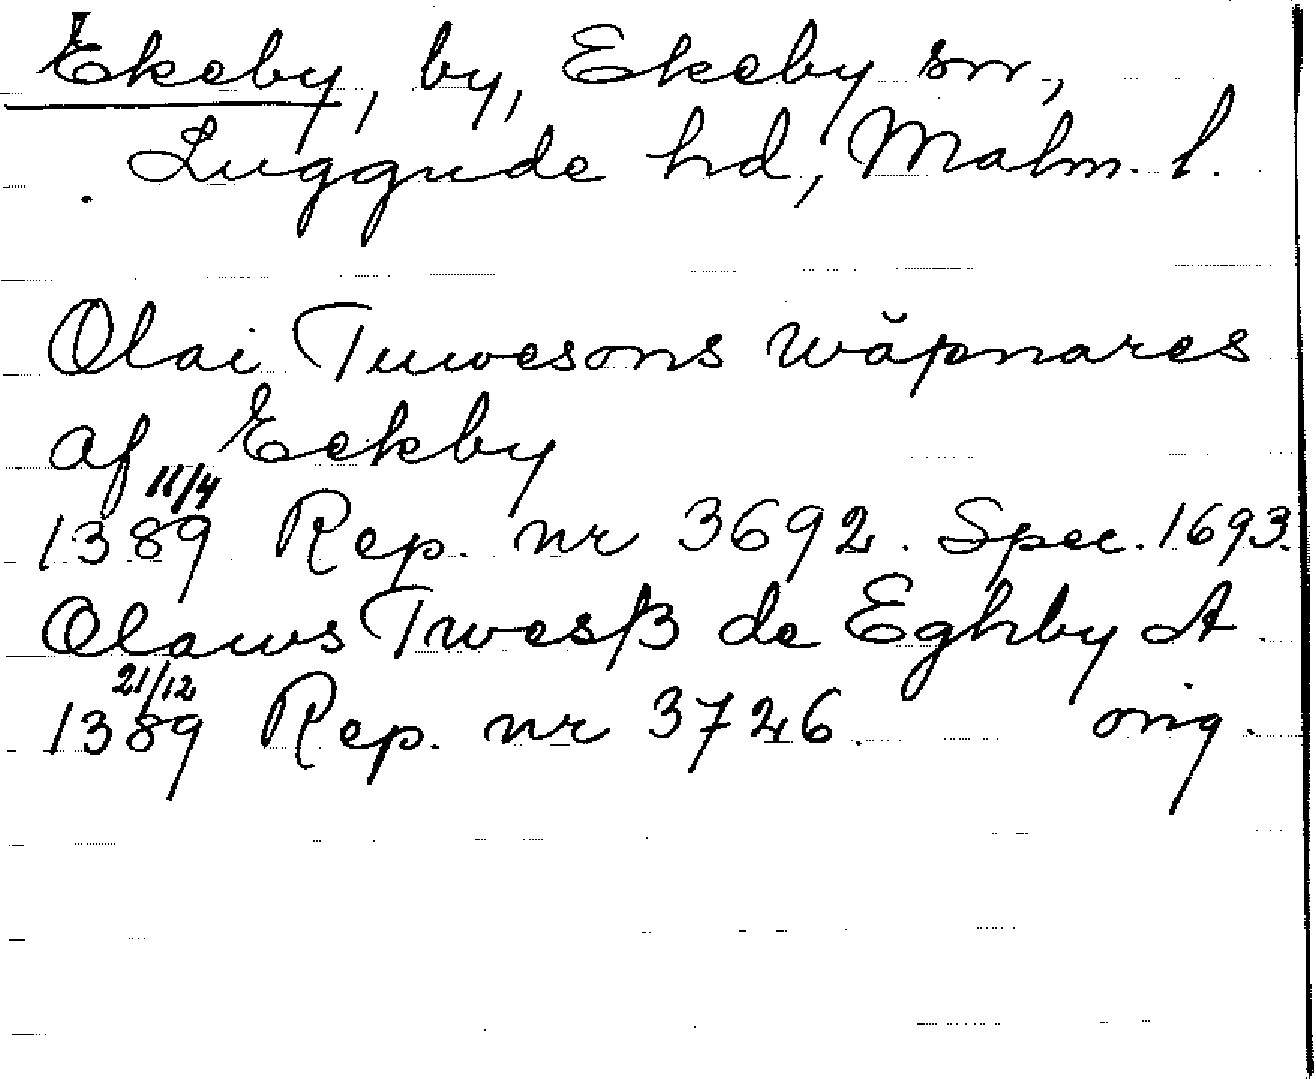 Ekeby, by, Ekeby sn,
Luggude hd, Malm. l.
Olai Tuwesons wăpnares
af Eekby
11/4
1389 Rep. nr 3692. Spec. 1693.
Olaws Twesß de Eghby A
21/12
1389 Rep. nr 3726. orig.